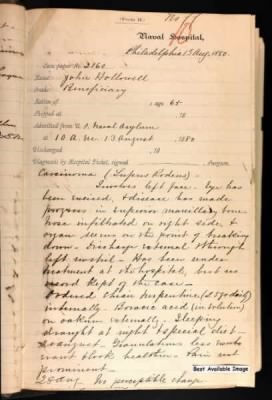 (Form 10.)
No
Naval Hospital,
Philadelphia 13 Aug, 1880.
Case paper No. 2160.
Name: John Hollowell
Grade: Beneficiary
Native of ; age 65
Shipped at , 18
Admitted from U.S. Naval Asylum
at 10 A.M. 13 August 1880
Discharged , 18
Diagnosis by Hospital Ticket, signed Surgeon.
Carcinoma (Lupus Rodens)
Involves left face. Eye has
been excised, & disease has made
progress in superior maxillary bone.
nose infiltrated on right side &
organ seems on the point of breaking
down - Discharge external & through
left nostril - Has been under
treatment at the hospital, but no
record kept of the case -
Ordered chian turpentine
internally. Boracic acid (in solution)
on oakum externally. Sleeping
draught at night & special diet -
August - Granulations less
look healthier - Pain not
prominent -
No perceptible change
Best Available Image